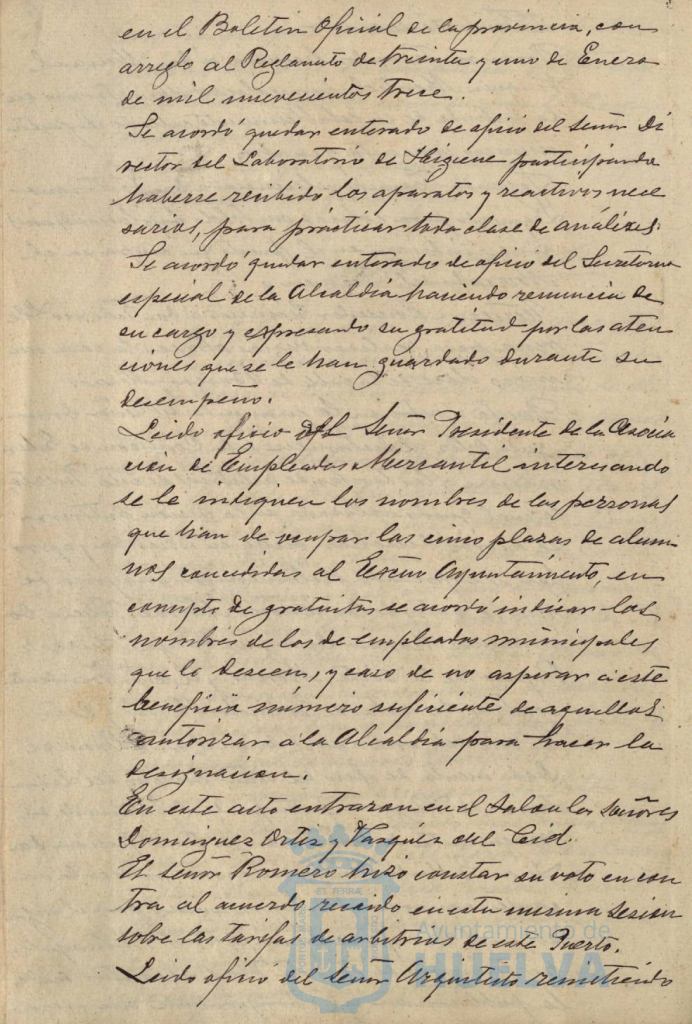 en el Boletin Oficial de la provincia, con
arreglo al Reglamento de treinta y uno de Enero
de mil nuevecientos trece.
Se acordó quedar enterado de oficio del Señor Di
rector del Laboratorio de Higiene participando
haberse recibido los aparatos y reactivos nece
sarios, para prácticar toda clase de análizes.
Se acordó quedar enterado de oficio del Secretario
especial de la Alcaldia haciendo renuncia de
su cargo y expresando su gratitud por las aten
ciones que se le han guardado durante su
desempeño.
Leido oficio del Señor Presidente de la Asocia
ción de Empleados Mercantil interesando
se le indiquen los nombres de las personas
que han de ocupar las cinco plazas de alum
nos concedidas al Excmo Ayuntamiento, en
consepto de gratuitas se acordó indicar los
nombres de los de empleados municipales
que lo deseen, y caso de no aspirar a este
beneficio número suficiente de aquellos
autorizar a la Alcaldia para hacer la
designacion.
En este acto entraron en el Salon los Señores
Dominguez Ortiz y Vazquez del Cid.
El señor Romero hizo constar su voto en con
tra al acuerdo recaido en esta misma sesion
sobre las tarifas de arbitrios de este Puerto.
Leido oficio del Señor Arquitecto remitiendo
Ayuntamiento de
HUELVA